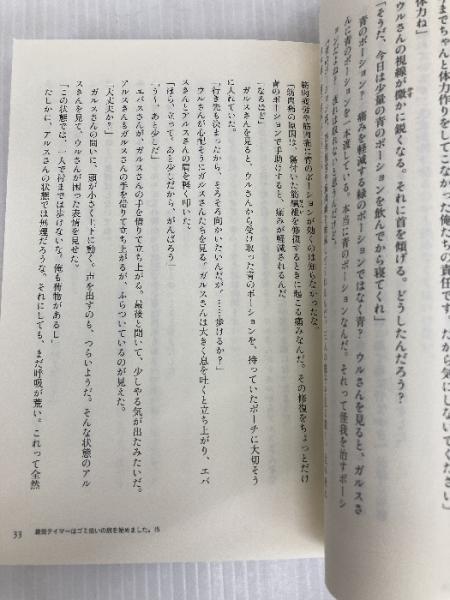 までちゃんと体力作りをしてこなかった俺たちの責任です。だから気にしないでください」
体力ね」
ウルさんの視線が微かに鋭くなる。それに首を傾げる。どうしたんだろう？
「そうだ、今日は少量の青のポーションを飲んでから寝てくれ」
青のポーション？　痛みを軽減する緑のポーションではなく青？　ウルさんを見ると、ガルスさ
んに青のポーションを一本渡している。本当に青のポーションなんだ。それって怪我を治すポーシ
筋肉疲労や筋肉痛に青のポーションが効くのは知らなかったな。
「筋肉痛の原因は、傷付いた筋繊維を修復するときに起こる痛みなんだ。その修復をちょっとだけ
青のポーションで手助けすると、痛みが軽減されるんだ」
「なるほど」
ガルスさんを見ると、ウルさんから受け取った青のポーションを、持っていたポーチに大切そう
に入れていた。
「行き先も決まったから、そろそろ向かいたいんだが、……歩けるか？」
ウルさんが心配そうにガルスさんたちを見る。ガルスさんは大きく息を吐くと立ち上がり、エバ
スさんとアルスさんの肩を軽く叩いた。
「ほら、立って。あと少しだから、がんばろう」
「う〜、あと少しだ」
エバスさんが、ガルスさんの手を借りて立ち上がる。最後と聞いて、少しやる気が出たみたいだ。
アルスさんもガルスさんの手を借りて立ち上がるが、ふらついているのが見えた。
「大丈夫か？」
ガルスさんの問いに、頭が小さく上下に動く。声を出すのも、つらいようだ。そんな状態のアル
スさんを見て、ウルさんが困った表情を見せた。
「この状態では、一人で村までは歩けないな。俺も荷物があるし」
たしかに、アルスさんの状態では無理だろうな。それにしても、まだ呼吸が荒い。これって全然
33　最弱テイマーはゴミ拾いの旅を始めました。15